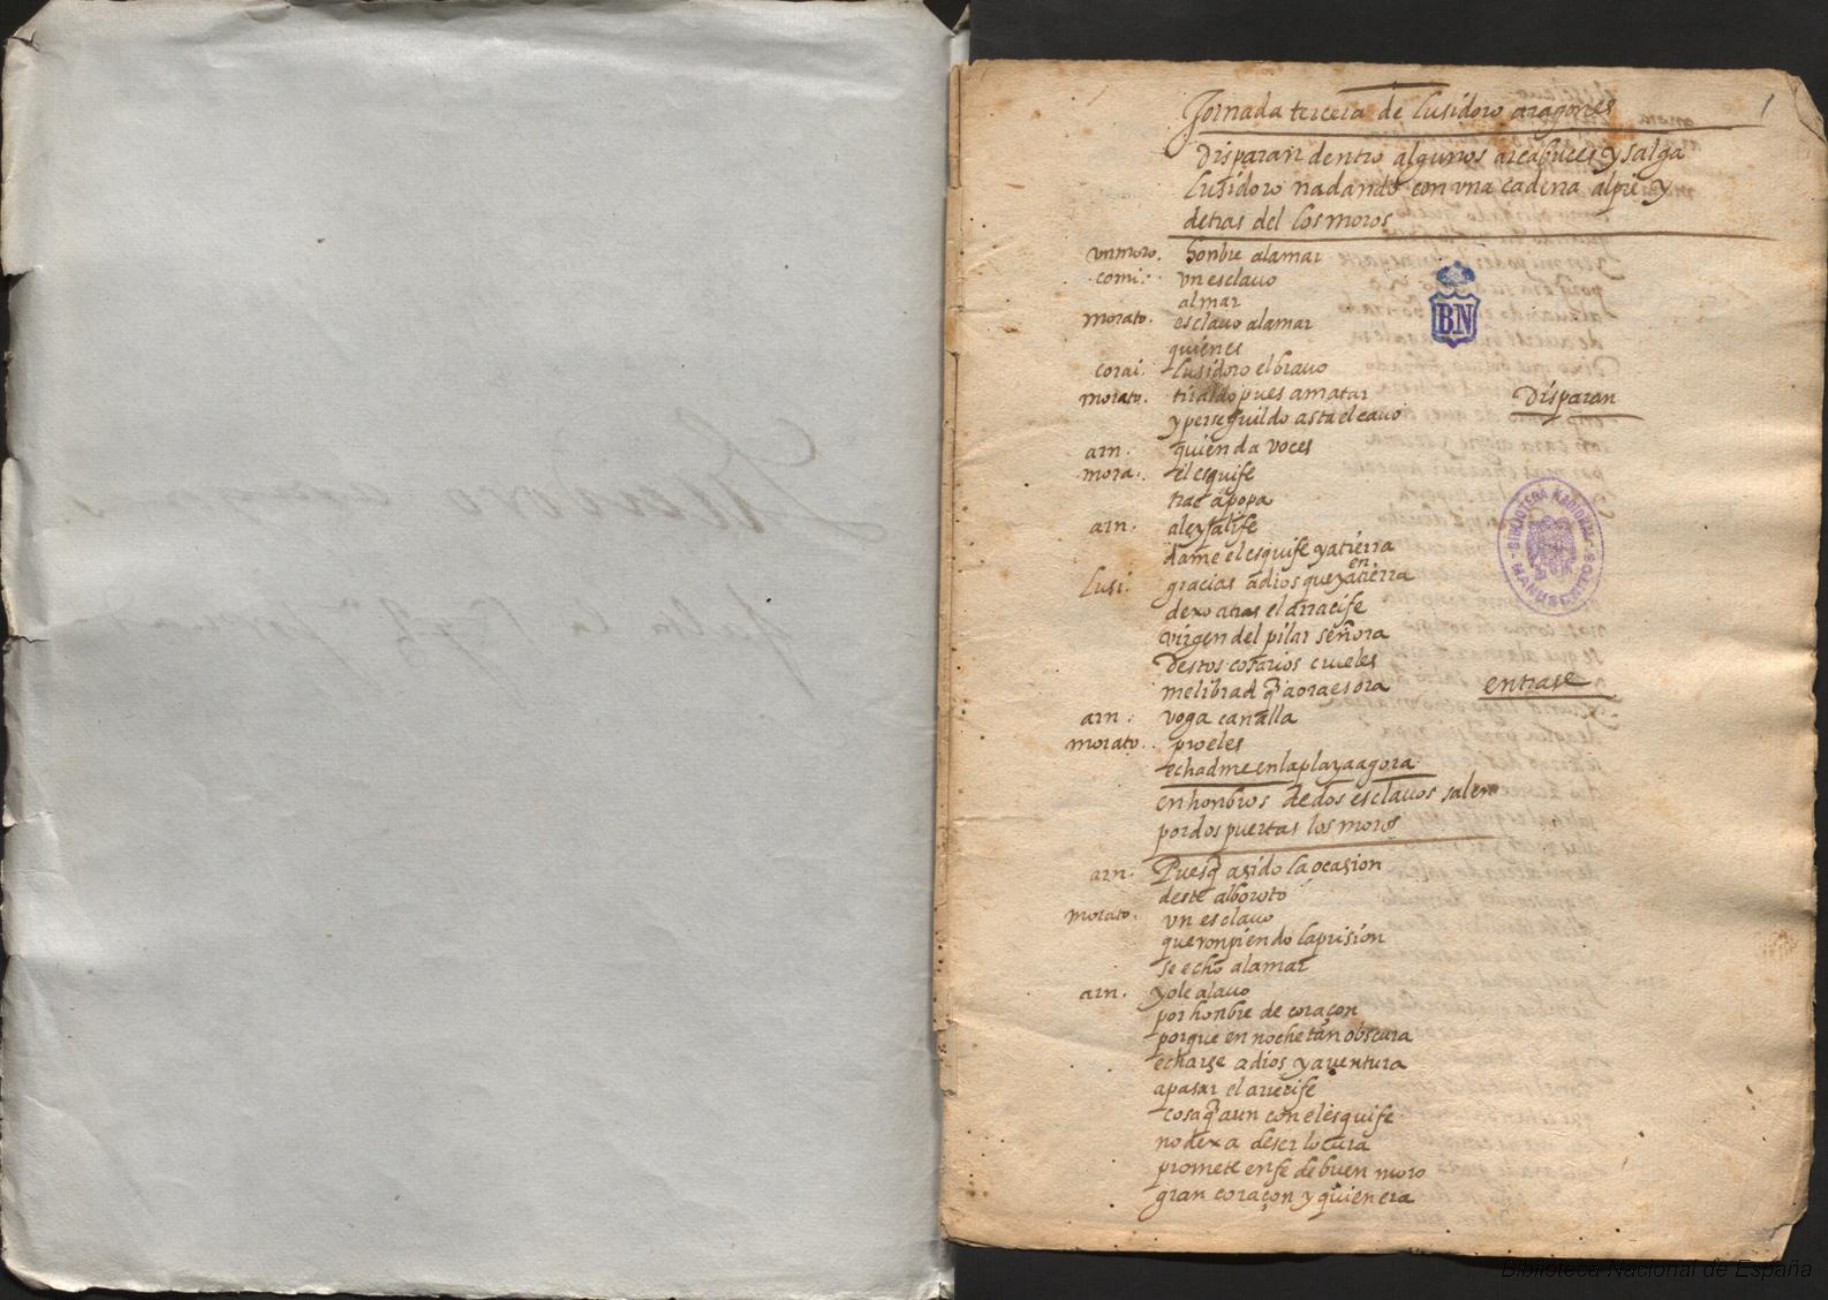 1
Jornada tercera de lusidoro aragones
Disparan dentro algunos arcabuces y salga
lusidoro nadando con vna cadena al pie y
detras del los moros
vn moro. honbre alamar
comi: vn esclauo
al mar
morato. esclauo alamar
quien es
corai. lusidoro el brauo
morato. tiraldo pues amatar
Disparan
y perseguildo asta el cauo
arn. quien da voces
mora. el esquife
trae apopa
arn. aleyfalife
dame el esquife y atierra
Lusi. gracias adios que ya en tierra
dexo atras el arracife
virgen del pilar señora
Destos cosarios crueles
me librad q̃ aora es ora
entrase
arn: voga canalla
morato. proeles
echadme en la playa agora
en honbros de dos esclauos salen
por dos puertas los moros
arn: Pues q̃ asido la ocasion
deste alboroto
morato. vn esclauo
que ronpiendo la prision
se echo alamar
arn. yo le alauo
por honbre de coraçon
porque en noche tan obscura
echarse adios y auentura
apasar el arrecife
cosa q̃ aun con el esquife
no dexa de ser locura
promete en fe de buen moro
gran coraçon y quien era
BN
BIBLIOTECA NACIONAL
MANUSCRITOS
Biblioteca Nacional de España